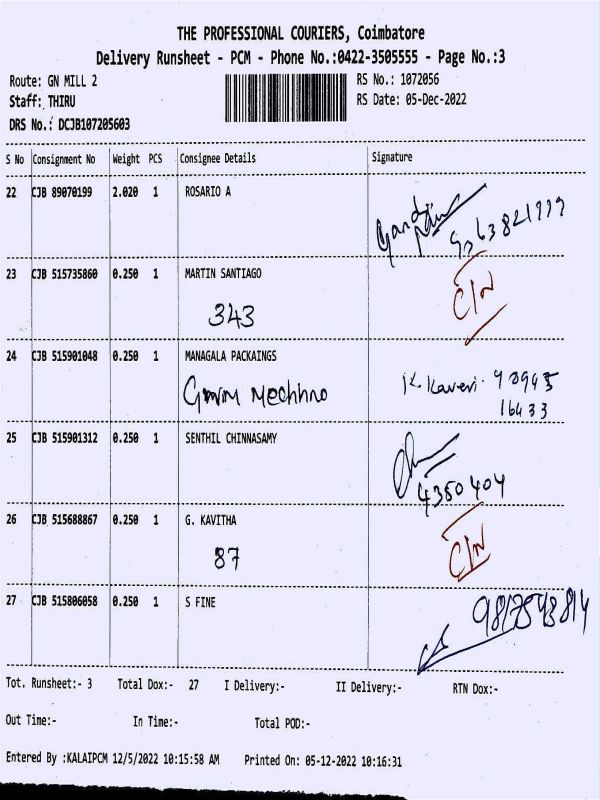 THE PROFESSIONAL COURIERS, Coimbatore
Delivery Runsheet - PCM - Phone No.:0422-3505555 - Page No.:3
Route: GN MILL 2
RS No.: 1072056
Staff: THIRU
RS Date: 05-Dec-2022
DRS No.: DCJB107205603
S No Consignment No Weight PCS Consignee Details Signature
22 CJB 89070199 2.020 1 ROSARIO A
23 CJB 515735860 0.250 1 MARTIN SANTIAGO
343
C/N
24 CJB 515901048 0.250 1 MANAGALA PACKAINGS
K. Kaveri. 90945
16433
25 CJB 515901312 0.250 1 SENTHIL CHINNASAMY
4350404
26 CJB 515688867 0.250 1 G. KAVITHA
87
C/N
27 CJB 515806058 0.250 1 S FINE
Tot. Runsheet:- 3 Total Dox:- 27 I Delivery:- II Delivery:- RTN Dox:-
Out Time:- In Time:- Total POD:-
Entered By :KALAIPCM 12/5/2022 10:15:58 AM Printed On: 05-12-2022 10:16:31